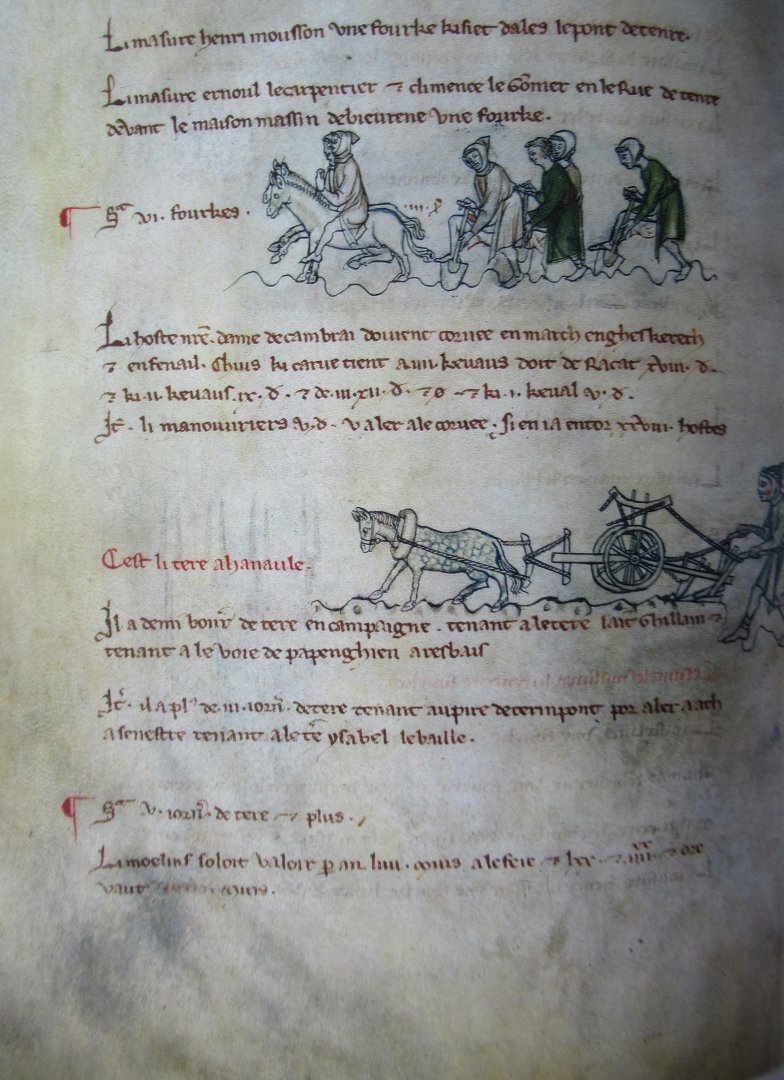 Li masure henri mousson vne fourke ki siet dales le pont de tenre.
Li masure ernoul le carpentier ⁊ climence le Gomer en le Rue de tenre
deuant le maison massin debieurene vne fourke.
Sᵃ vi. fourkes.
Li hoste nrē. dame de cambrai doiuent coruee en march enghesketech
⁊ en fenail. Chius ki carue tient a .iiii. keuaus doit de Racat xviii. d.
⁊ ki .ii. keuaus .ix. d. ⁊ de .iii. xii. d. ⁊ ki .i. keual v. d.
It̄. li manouuriers v. d. v aler a le coruee. Si en i a encor xxviii. hostes
Cest li tere ahanaule.
Il a demi bonr̄ de tere en campaigne. tenant a le tere saint Ghillain ⁊
tenant a le voie de papenghien
It̄. il a pl᷒ de .iii. iorn̄. de tere tenant au pire de termpont por aler a ach
a senestre tenant a le tr̄e ysabel le baille.
Sᵃ v. iorn̄. de tere ⁊ plus.
Li moelins soloit valoir p an. muis a le feie ⁊ ore
vaut muis.